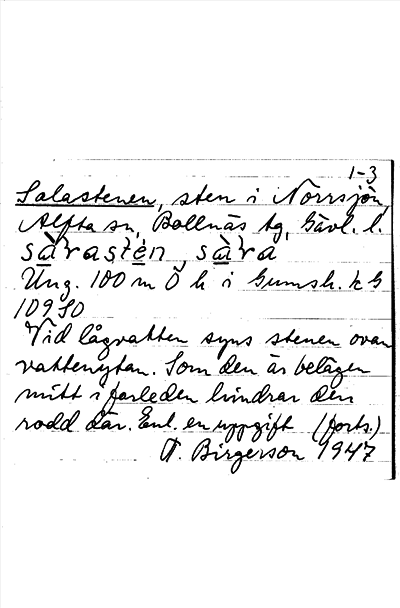 1-3
Salastenen, sten i Norrsjön,
Alfta sn, Bollnäs tg, Gävl. l.
Ung. 100 m Ö h i Gumsh. k G
10980
Vid lågvatten syns stenen ovan
vattenytan. Som den är belägen
mitt i farleden hindrar den
rodd där. Enl. en uppgift (forts.)
Birgerson 1947